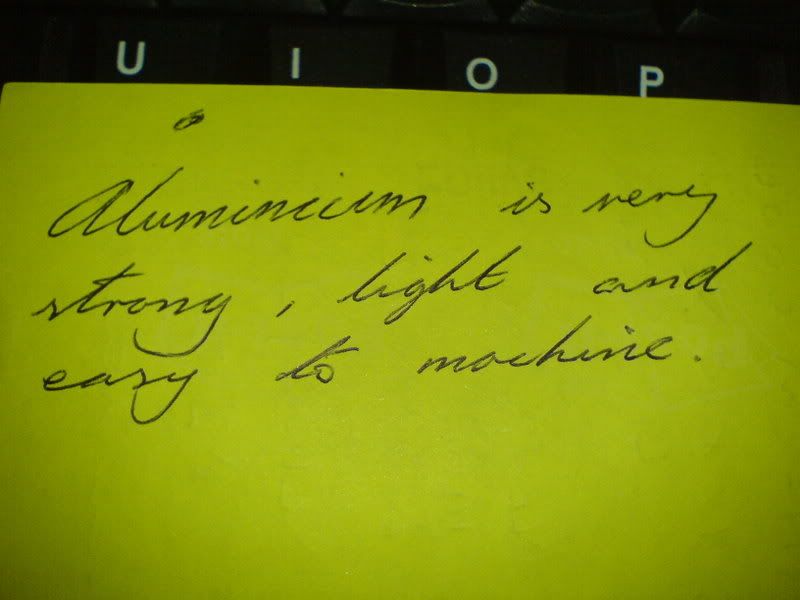 U I O P
Aluminium is very
strong, light and
easy to machine.